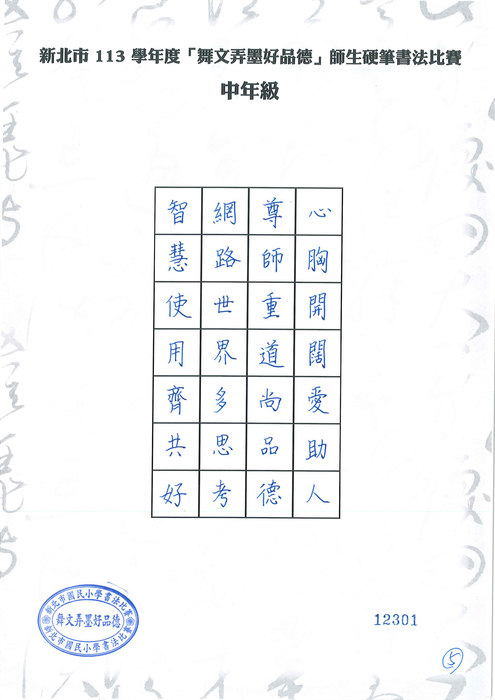 新北市 113 學年度「舞文弄墨好品德」師生硬筆書法比賽
中年級
心胸開闊愛助人
尊師重道尚品德
網路世界多思考
智慧使用齊共好
新北市國民小學書法比賽
舞文弄墨好品德
新北市國民小學書法比賽
12301
5